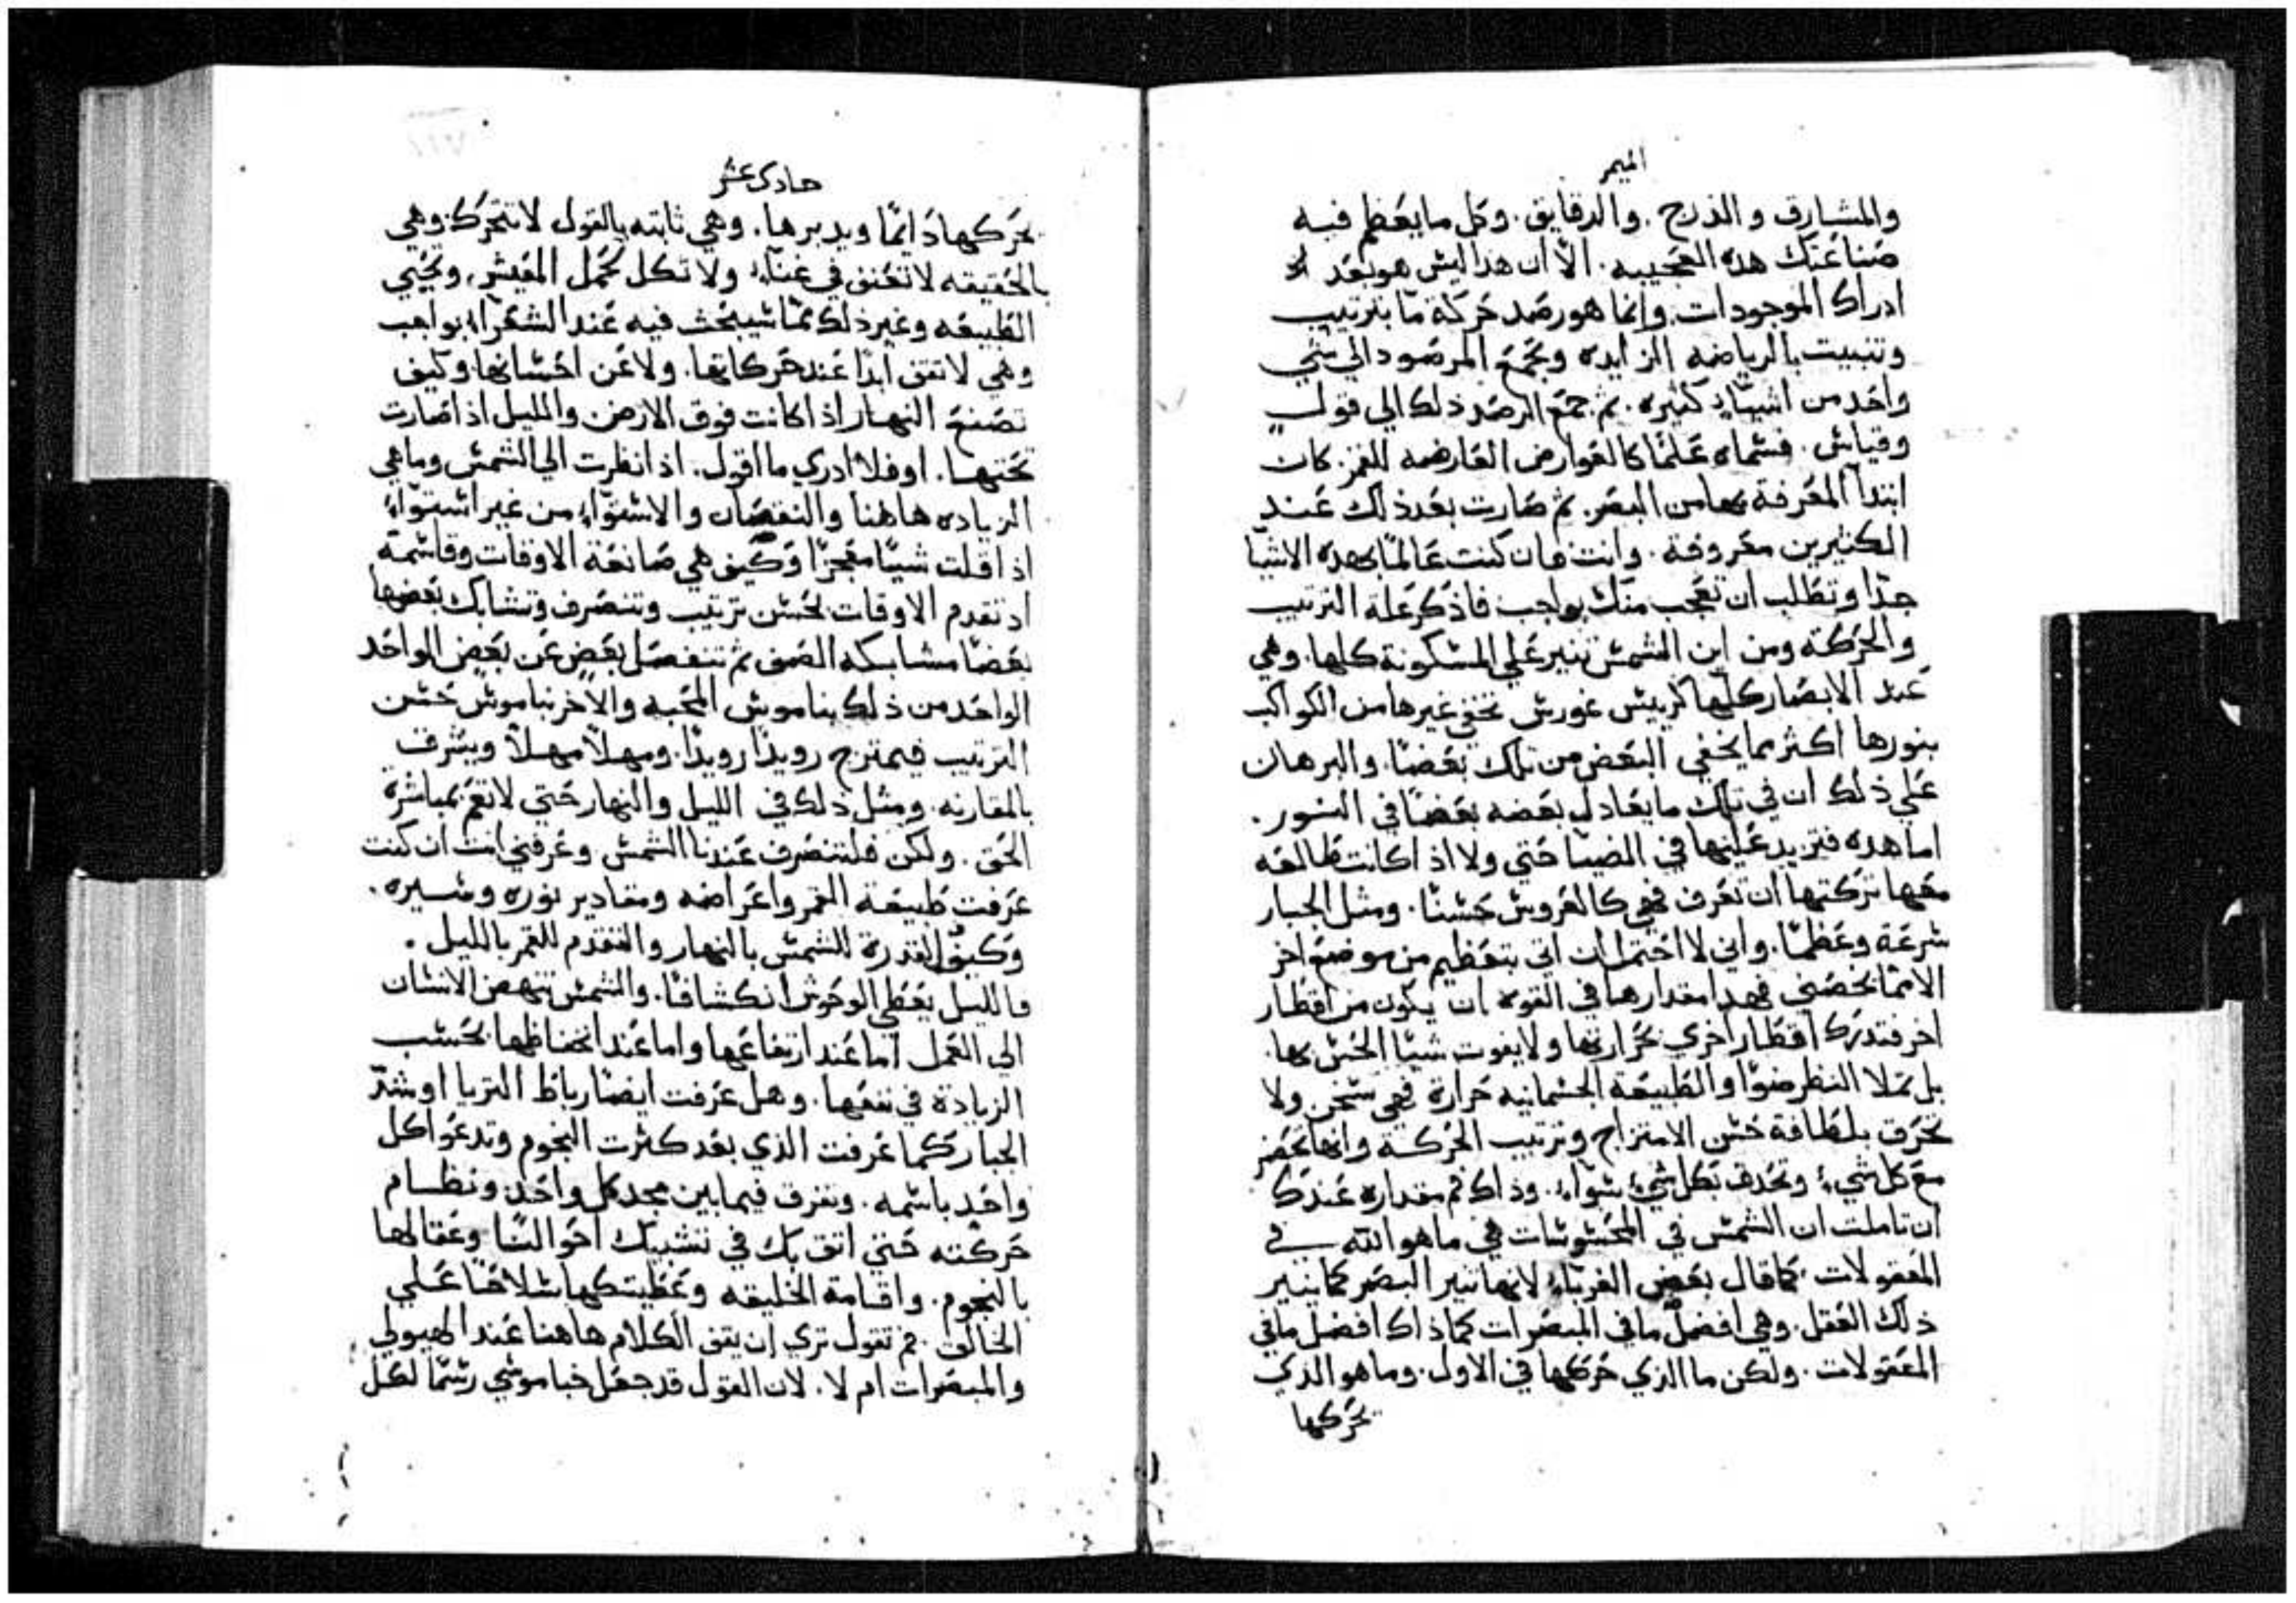 الميمر
والمشارق والدرج. والدقايق. وكل ما يعظم فيه
صناعتك هده العجيبه. الا ان هدا ليش هو بعد
ادراك الموجودات. وانما هو رصد حركة ما بترتيب
وتتبيت بالرياضه الزايده وبجمع المرصود الي شي
واحد من اشيا كثيره. ثم جمع الرصد ذلك الي قول
وقياش. فشماه علما كالعوارض العارضه للقمر. كان
ابتدا المعرفة بها من البصر. ثم صارت بعد ذلك عند
الكثيرين معروفة. وانت فان كنت عالما بهده الاشيا
جدا وتطلب ان تعجب منك بواجب فاذكر علة الترتيب
والحركة ومن اين الشمش تنير علي المشكونة كلها. وهي
عند الابصار كلها كرييش غورش تخفي غيرها من الكواكب
بنورها اكثر مما يخفي البعض من تلك بعضا. والبرهان
علي ذلك ان في تلك ما يعادل بعضه بعضا في النور.
اما هده فتزيد عليها في الضيا حتي ولا اذا كانت طالعه
معها تركتها ان تعرف فهي كالعروش حشنا. ومثل الجبار
شرعة وعظما. واني لا احتمل ان اتي بتعظيم من موضع اخر
الا مما يخصني فهدا مقدارها في القوة ان يكون من اقطار
اخر فتدرك اقطار اخري بحرارتها ولا يفوت شيا الحش بها.
بل تملا النظر ضوا والطبيعة الجشمانيه حرارة فهي تشخن ولا
تحرق بلطافة حشن الامتزاج وترتيب الحركة وانها تحضر
مع كل شيء وتحدق بكل شيء شواء. وذاك فم مقداره عندك
ان تاملت ان الشمش في المحشوشات هي ما هو الله في
المعقولات. كما قال بعض الغرباء لانها تنير البصر كما ينير
ذلك العقل. وهي افضل ما في المبصرات كما ذاك افضل ما في
المعقولات. ولكن ما الذي حركها في الاول. وما هو الذي
يحركها
حادي عشر
يحركها دايما ويدبرها. وهي ثابته بالقول لا تتحرك وهي
بالحقيقه لا تعنف في غناء ولا تكل تحمل المعيش. وتحيي
الطبيعه وغير ذلك مما شيبحث فيه عند الشعراء بواجب
وهي لا تقف ابدا عند حركاتها. ولا عن احشانها. وكيف
تصنع النهار اذا كانت فوق الارض والليل اذا صارت
تحتها. او فلا ادري ما اقول. اذا نظرت الي الشمش وما هي
الزياده هاهنا والنقصان والاشتواء من غير اشتواء
اذا قلت شيا معجزا وكيف هي صانعة الاوقات وقاشمة
اذ تقدم الاوقات بحشن ترتيب وتنصرف وتشابك بعضها
بعضا مشابكه الصف ثم تنفصل بعض عن بعض الواحد
الواحد من ذلك بناموش المحبه والاخر بناموش حشن
الترتيب فيمتزج رويدا رويدا. ومهلا مهلا ويشرق
بالمقارنه. ومثل ذلك في الليل والنهار حتي لا تغم بمباشرة
الحق. ولكن فلتنصرف عندنا الشمش وعرفني انت ان كنت
عرفت طبيعة القمر واعراضه ومقادير نوره ومشيره.
وكيف القدرة للشمش بالنهار والتقدم للقمر بالليل.
فالليل يعطي الوحوش انكشافا. والشمش تنهض الانشان
الي العمل اما عند ارتفاعها واما عند انخفاظها بحشب
الزيادة في نفعها. وهل عرفت ايضا رباط التريا او شد
الجبار كما عرفت الذي بعد كثرت النجوم وتدعوا كل
واحد باشمه. وتفرق فيما بين مجد كل واحد ونظام
حركته حتي اتق بك في تشبيك احوالنا وعقالها
بالنجوم. واقامة الخليقه شلاحا علي
الخالق. فم تقول تري ان يقف الكلام هاهنا عند الهيولي
والمبصرات ام لا. لان القول قد جعل خبا موشي رشما لكل